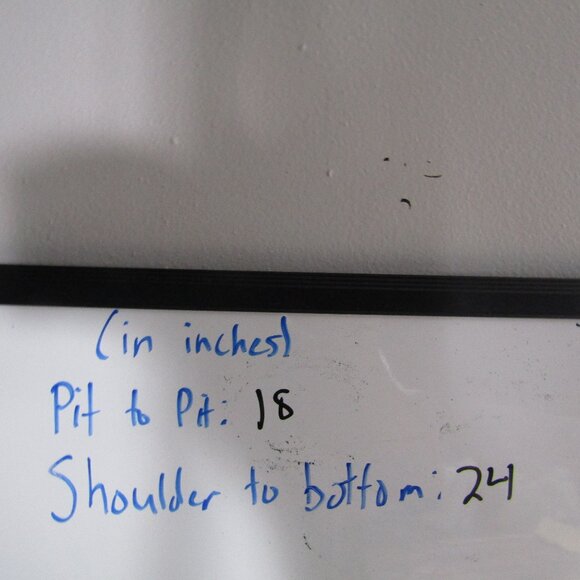 (in inches)
Pit to Pit: 18
Shoulder to bottom: 24